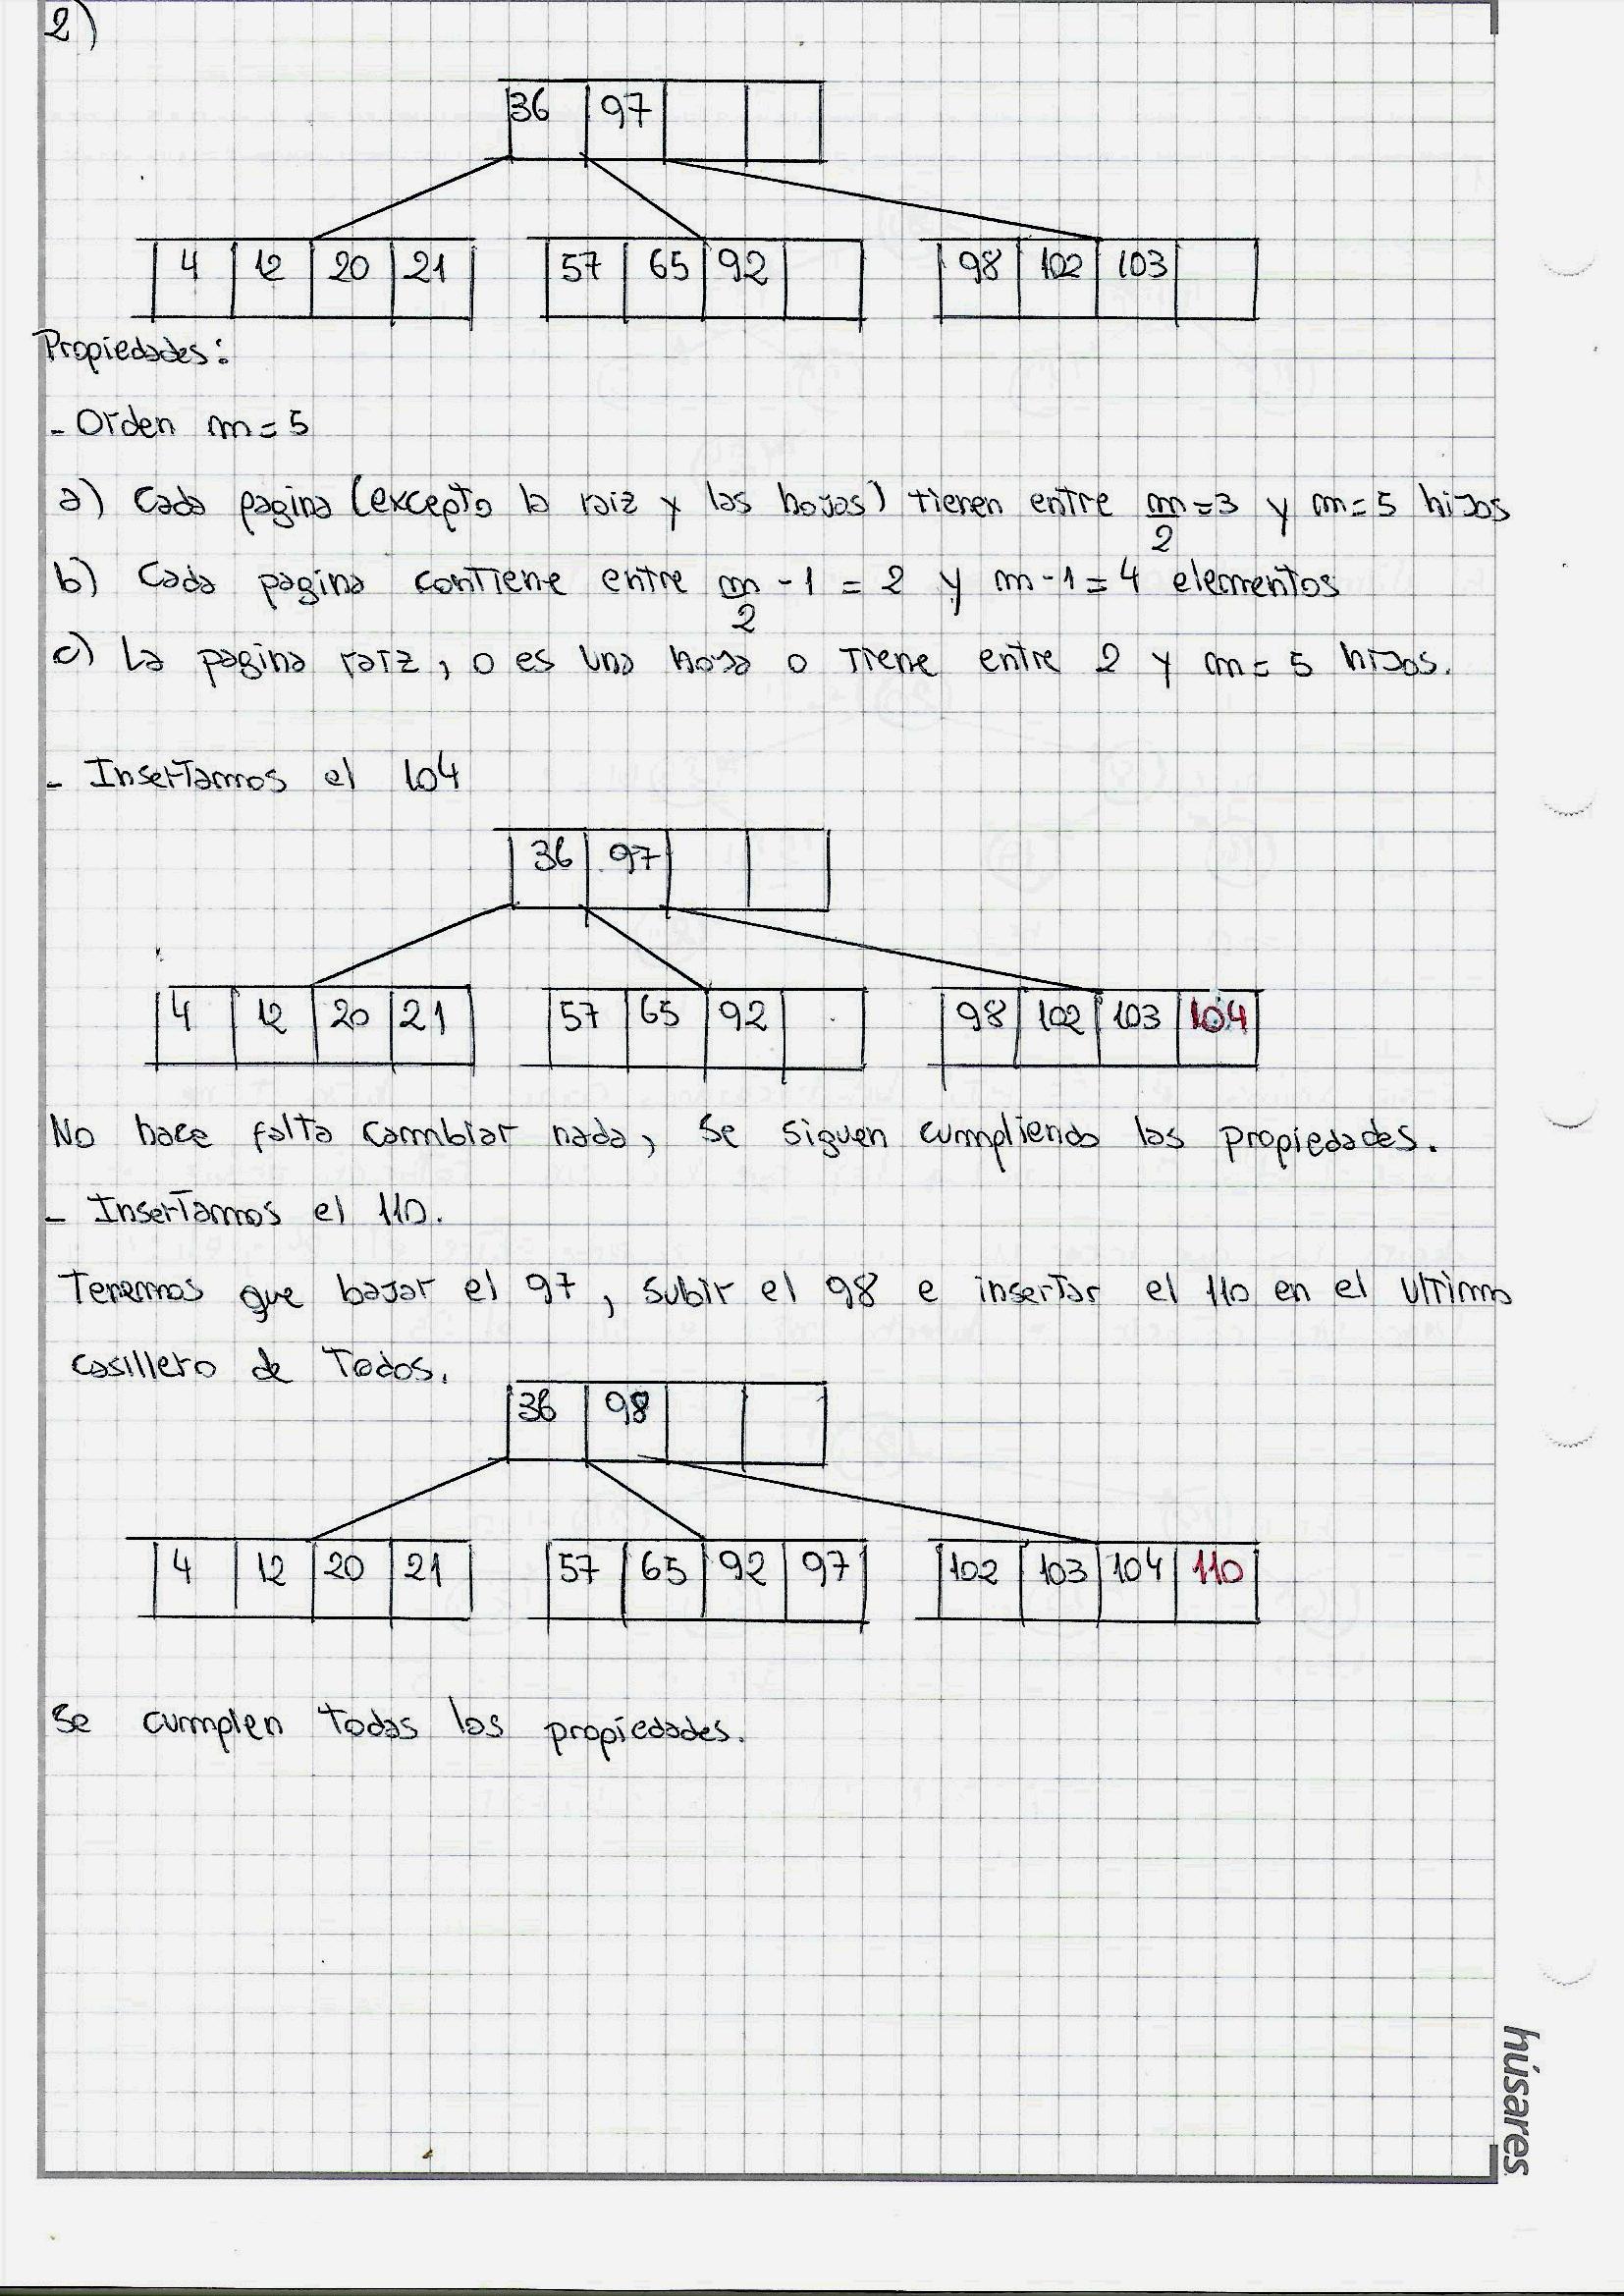 2)
36 97
4 12 20 21 57 65 92 98 102 103
Propiedades:
- Orden m=5
a) Cada pagina (excepto la raiz y las hojas) tienen entre m/2=3 y m=5 hijos
b) Cada pagina contiene entre m/2 -1 = 2 y m-1=4 elementos
c) La pagina raiz, o es una hoja o tiene entre 2 y m=5 hijos.
- Insertamos el 104
36 97
4 12 20 21 57 65 92 98 102 103 104
No hace falta cambiar nada, se siguen cumpliendo las propiedades.
- Insertamos el 110.
Tenemos que bajar el 97, subir el 98 e insertar el 110 en el ultimo
casillero de todos.
36 98
4 12 20 21 57 65 92 97 102 103 104 110
Se cumplen todas las propiedades.
húsares